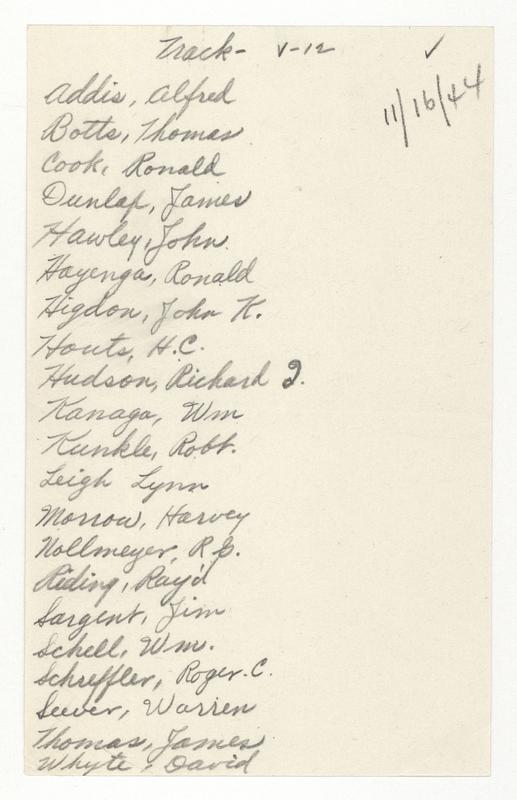 Track- V-12 ✓
11/16/44
Addis, Alfred
Botts, Thomas
Cook, Ronald
Dunlap, James
Hawley, John
Hayenga, Ronald
Higdon, John K.
Houts, H.C.
Hudson, Richard I.
Kanaga, Wm
Kunkle, Robt.
Leigh Lynn
Morrow, Harvey
Nollmeyer, R.
Riding, Ray'd
Sargent, Jim
Schell, Wm.
Schreffler, Roger. C.
Seever, Warren
Thomas, James
Whyte, David